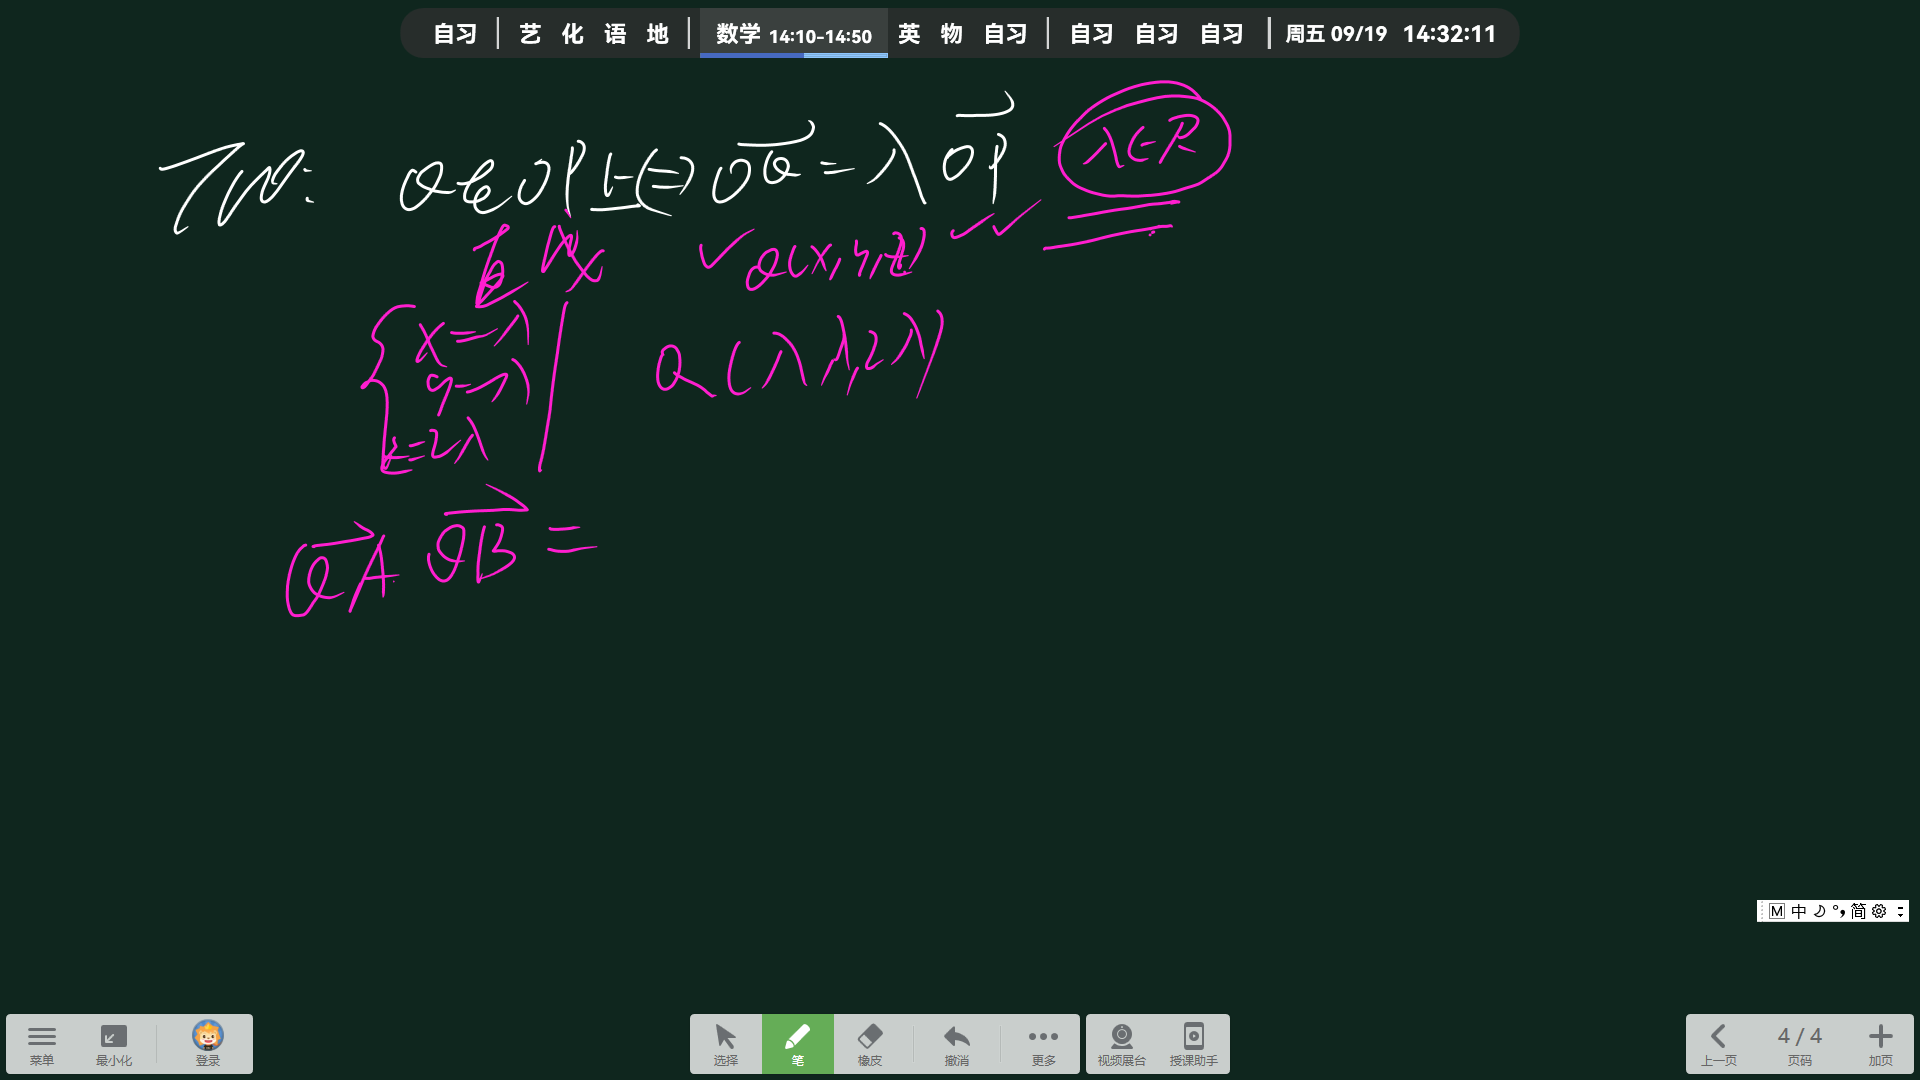 自习 | 艺 化 语 地 | 数学 14:10-14:50 英 物 自习 | 自习 自习 自习 | 周五 09/19 14:32:11
Q在OP上⇔OQ=λOP λ∈R
直线 Q(x,y,z)
x=λ
y=λ
z=2λ
Q(λ,λ,2λ)
QA QB=
M 中 简
菜单 最小化 登录 选择 笔 橡皮 撤消 更多 视频展台 授课助手 上一页 4/4 页码 加页